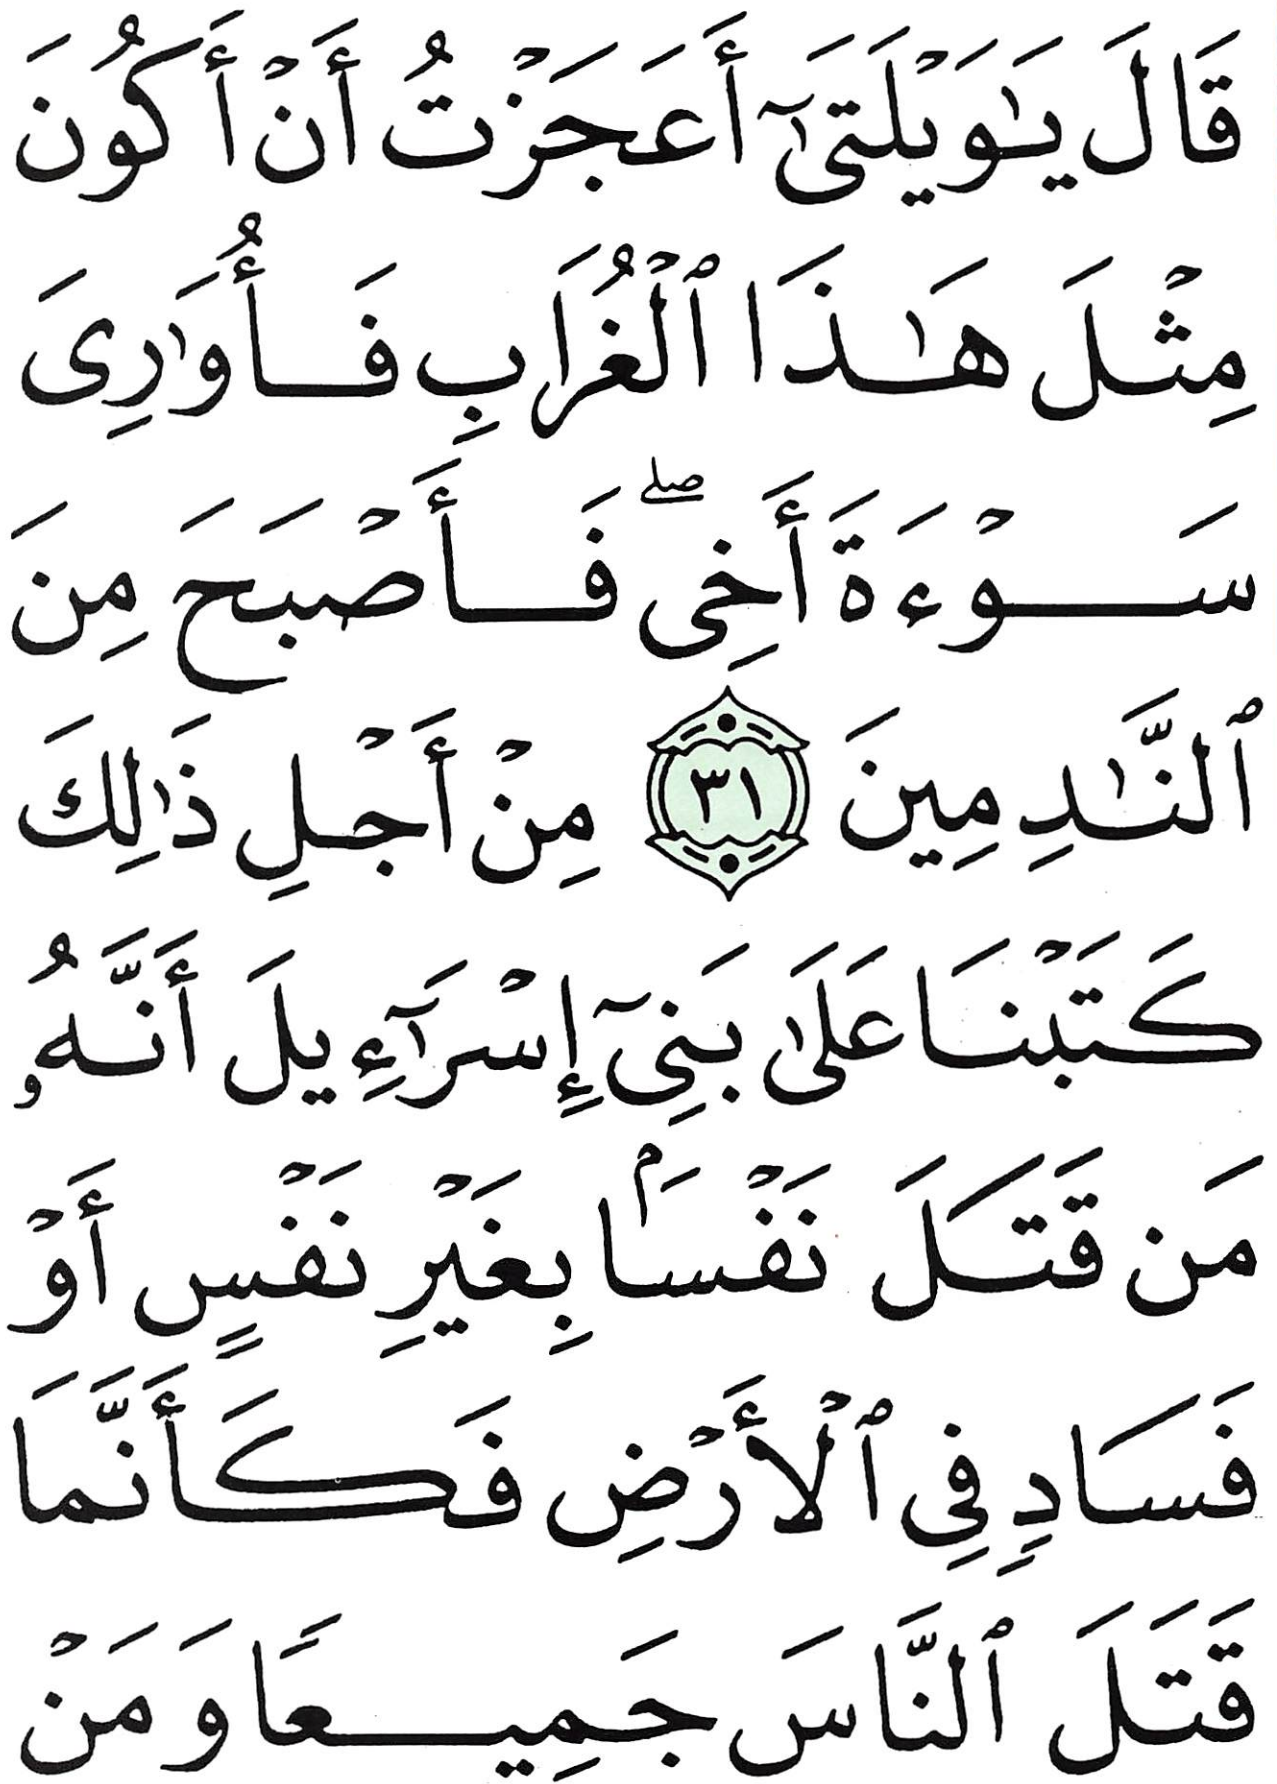 قَالَ يَٰوَيْلَتَىٰٓ أَعَجَزْتُ أَنْ أَكُونَ
مِثْلَ هَٰذَا ٱلْغُرَابِ فَأُوَٰرِىَ
سَوْءَةَ أَخِى ۖ فَأَصْبَحَ مِنَ
ٱلنَّٰدِمِينَ ٣١ مِنْ أَجْلِ ذَٰلِكَ
كَتَبْنَا عَلَىٰ بَنِىٓ إِسْرَٰٓءِيلَ أَنَّهُۥ
مَن قَتَلَ نَفْسَۢا بِغَيْرِ نَفْسٍ أَوْ
فَسَادٍ فِى ٱلْأَرْضِ فَكَأَنَّمَا
قَتَلَ ٱلنَّاسَ جَمِيعًا وَمَنْ